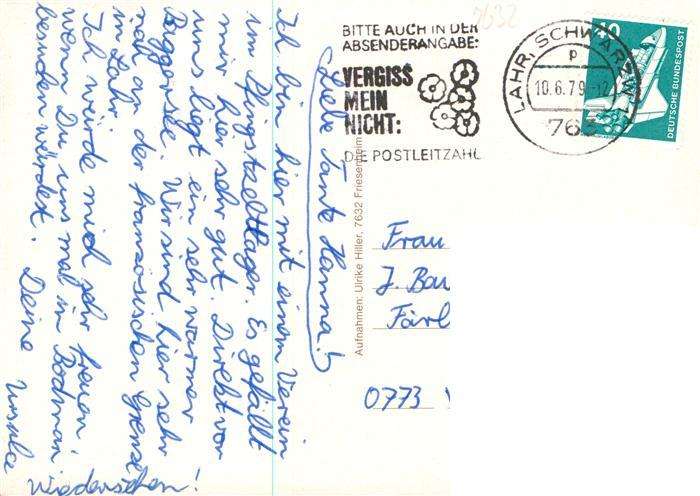 Liebe Tante Hanna!
Ich bin hier mit einem Verein
im Pfingstzeltlager. Es gefällt
mir hier sehr gut. Direkt vor
uns liegt ein sehr warmer
Baggersee. Wir sind hier sehr
nah an der französischen Grenze
in Lahr.
Ich würde mich sehr freuen
wenn Du uns mal in Bodman
besuchen würdest. Deine Ursula
Wiedersehen!
Aufnahmen: Ulrike Hiller, 7632 Friesenheim
7632
BITTE AUCH IN DER
ABSENDERANGABE:
VERGISS
MEIN
NICHT:
DIE POSTLEITZAHL
LAHR, SCHWARZW
p
10.6.79-12
763
DEUTSCHE BUNDESPOST
Frau
J. Bau
Färb
0773